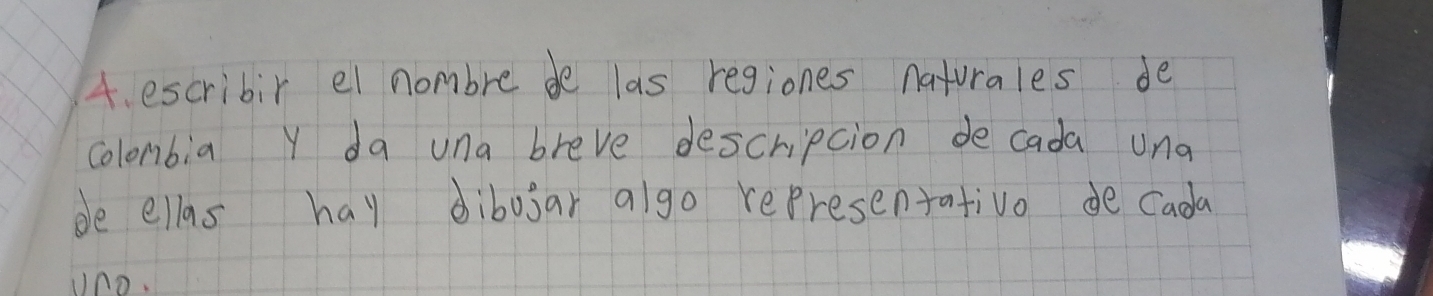 4. escribir el nombre de las regiones naturales de
colombia y da una breve descripcion de cada una
de ellas hay dibujar algo representativo de cada
uno.